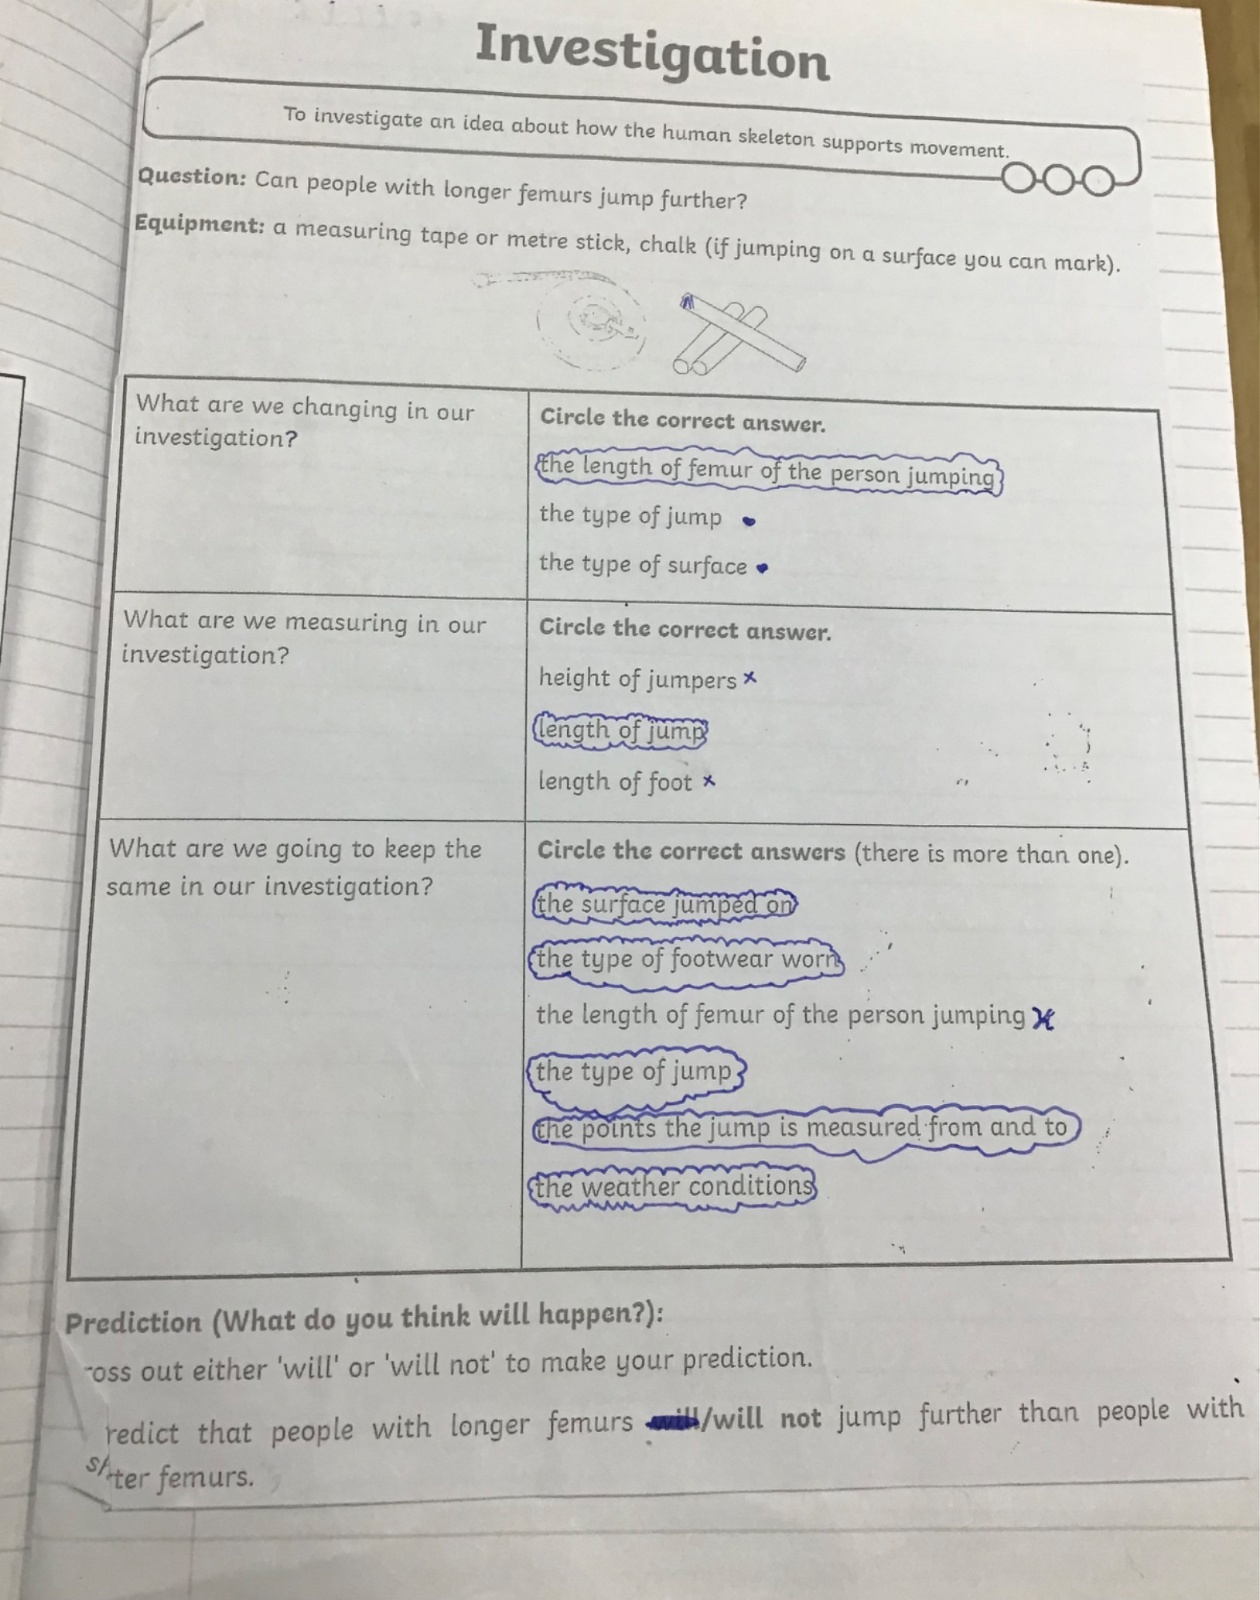 Investigation
To investigate an idea about how the human skeleton supports movement.
Question: Can people with longer femurs jump further?
Equipment: a measuring tape or metre stick, chalk (if jumping on a surface you can mark).
What are we changing in our
investigation?
Circle the correct answer.
the length of femur of the person jumping
the type of jump
the type of surface
What are we measuring in our
investigation?
Circle the correct answer.
height of jumpers x
length of jump
length of foot x
What are we going to keep the
same in our investigation?
Circle the correct answers (there is more than one).
the surface jumped on
the type of footwear worn
the length of femur of the person jumping x
the type of jump
the points the jump is measured from and to
the weather conditions
Prediction (What do you think will happen?):
ross out either 'will' or 'will not' to make your prediction.
redict that people with longer femurs will/will not jump further than people with
ter femurs.